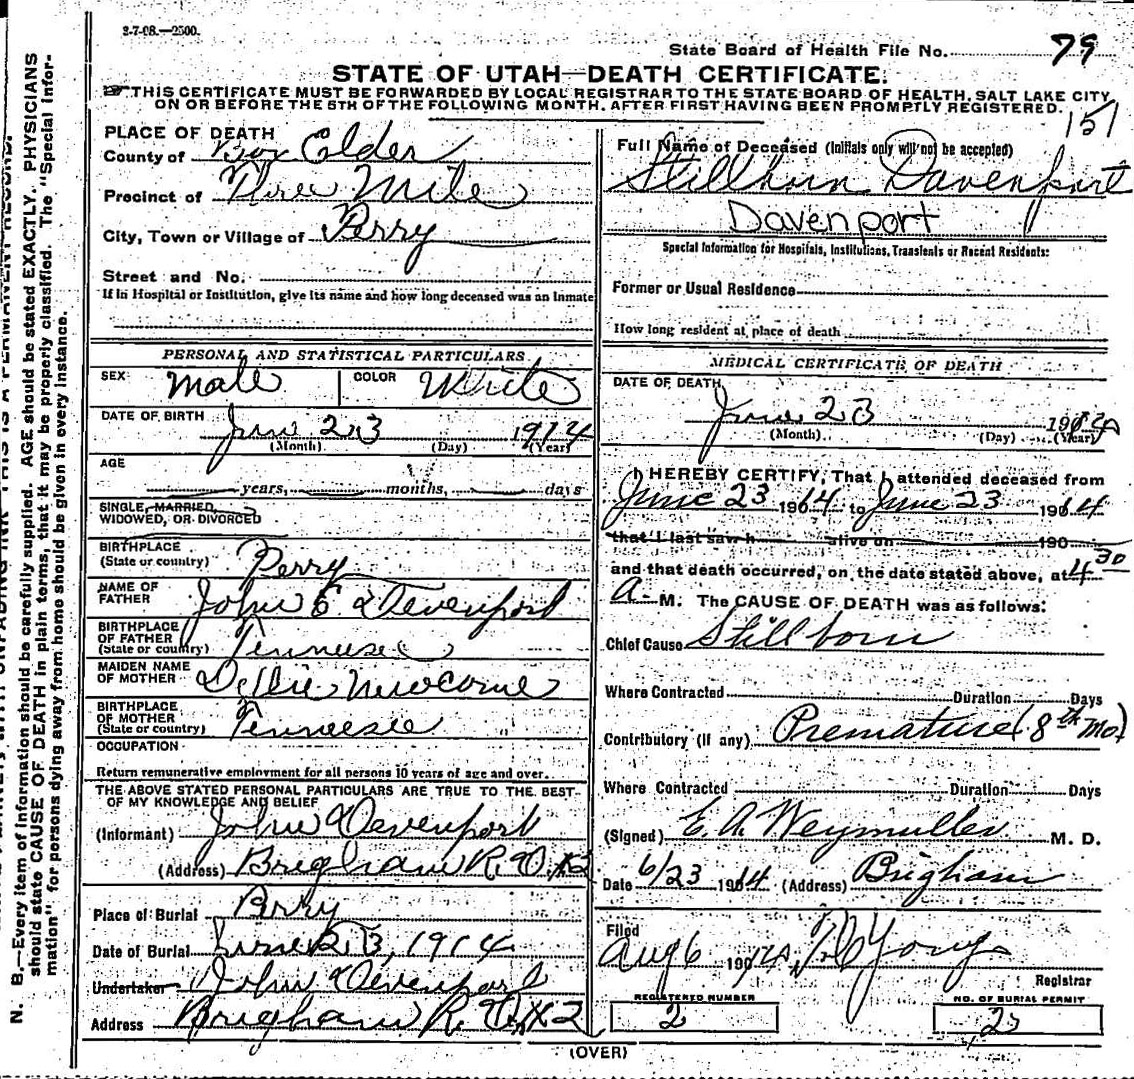 2-7-08.—2500.
State Board of Health File No. 79
STATE OF UTAH—DEATH CERTIFICATE.
THIS CERTIFICATE MUST BE FORWARDED BY LOCAL REGISTRAR TO THE STATE BOARD OF HEALTH, SALT LAKE CITY,
ON OR BEFORE THE 5TH OF THE FOLLOWING MONTH, AFTER FIRST HAVING BEEN PROMPTLY REGISTERED.
151
PLACE OF DEATH
County of Box Elder
Precinct of Three Mile
City, Town or Village of Perry
Street and No.
If in Hospital or Institution, give its name and how long deceased was an inmate
PERSONAL AND STATISTICAL PARTICULARS
SEX Male COLOR White
DATE OF BIRTH June 23 1914
(Month) (Day) (Year)
AGE
years, months, days
SINGLE, MARRIED,
WIDOWED, OR DIVORCED
BIRTHPLACE
(State or country) Perry
NAME OF
FATHER John E Devenport
BIRTHPLACE
OF FATHER
(State or country) Tennessee
MAIDEN NAME
OF MOTHER Dellie Newcome
BIRTHPLACE
OF MOTHER
(State or country) Tennessee
OCCUPATION
Return remunerative employment for all persons 10 years of age and over.
THE ABOVE STATED PERSONAL PARTICULARS ARE TRUE TO THE BEST
OF MY KNOWLEDGE AND BELIEF
(Informant) John Devenport
(Address) Brigham R.D. #2
Place of Burial Perry
Date of Burial June 23, 1914
Undertaker John Devenport
Address Brigham R.D. #2
Full Name of Deceased (Initials only will not be accepted)
Stillborn Davenport
Davenport
Special Information for Hospitals, Institutions, Transients or Recent Residents:
Former or Usual Residence
How long resident at place of death
MEDICAL CERTIFICATE OF DEATH
DATE OF DEATH
June 23 1914
(Month) (Day) (Year)
I HEREBY CERTIFY, That I attended deceased from
June 23 1914 to June 23 1914
that I last saw h alive on 190
and that death occurred, on the date stated above, at 4 30
A. M. The CAUSE OF DEATH was as follows:
Chief Cause Stillborn
Where Contracted Duration Days
Contributory (if any) Premature (8th Mo)
Where Contracted Duration Days
(Signed) E. A. Weymuller M. D.
Date 6/23 1914 (Address) Brigham
Filed
Aug 6 1914, Young
Registrar
REGISTERED NUMBER
2
NO. OF BURIAL PERMIT
2
(OVER)
N. B.—Every item of information should be carefully supplied. AGE should be stated EXACTLY. PHYSICIANS
should state CAUSE OF DEATH in plain terms, that it may be properly classified. The "Special Infor-
mation" for persons dying away from home should be given in every instance.